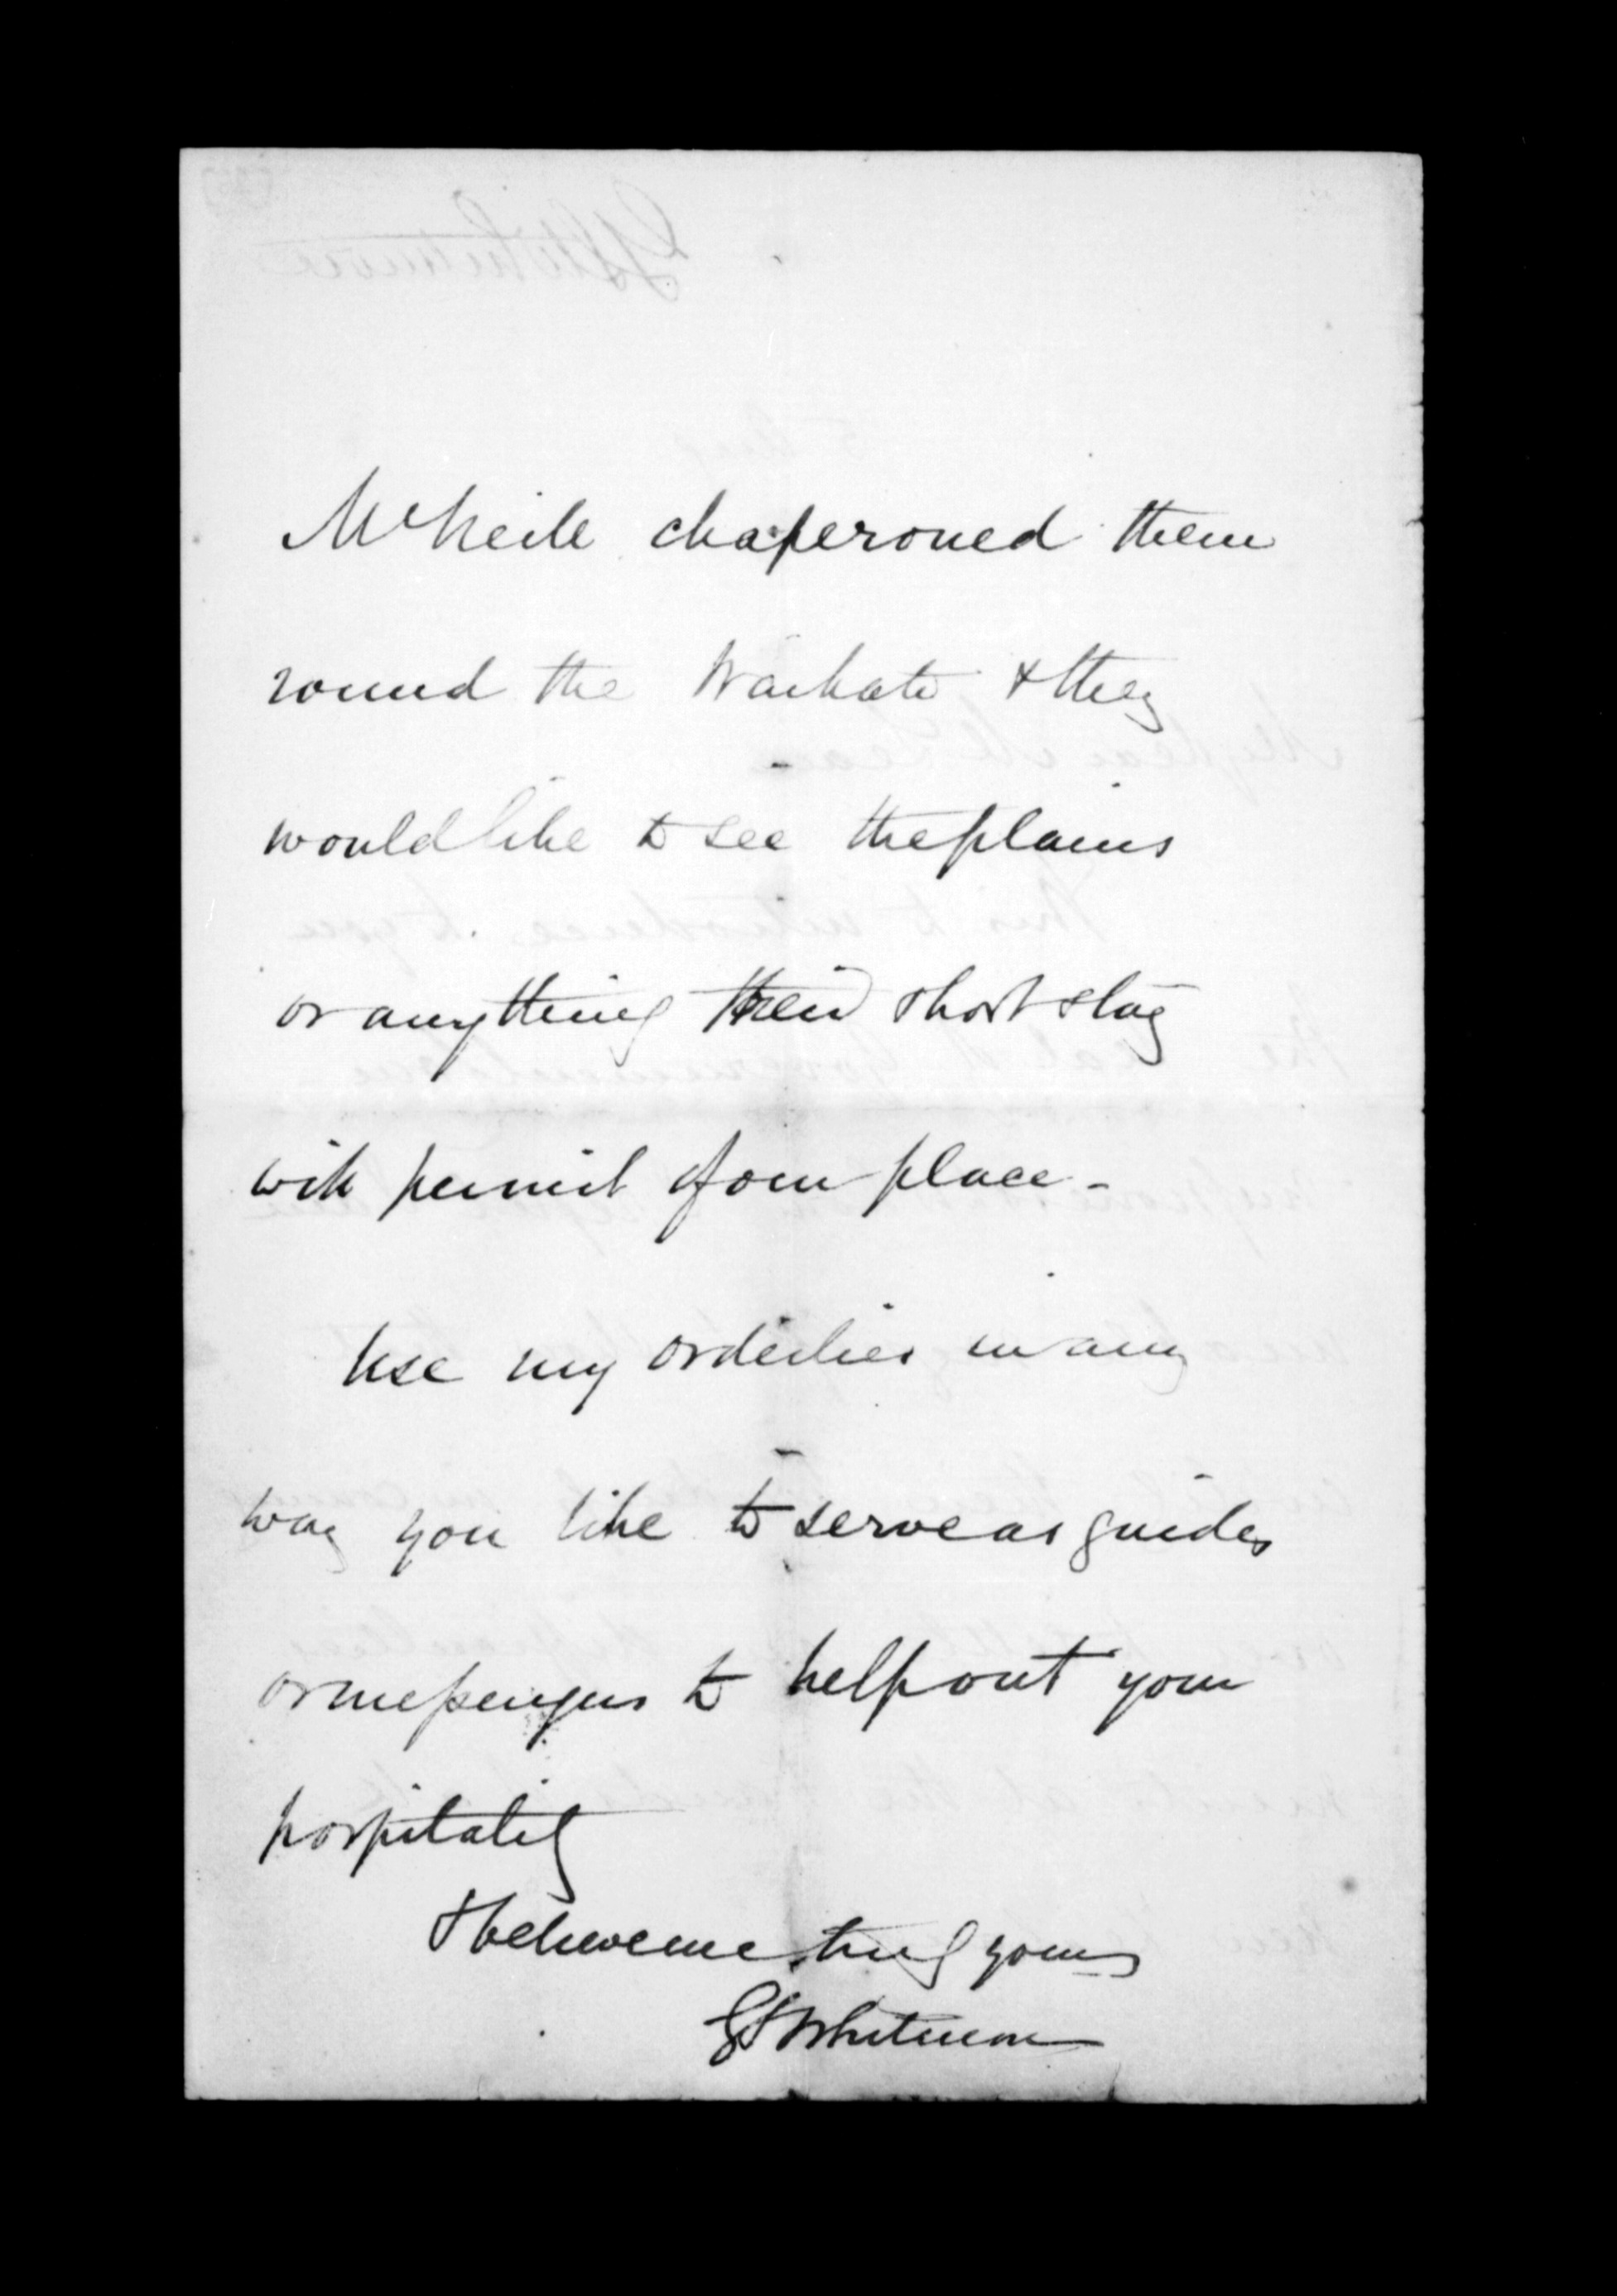 McNeile chaperoned them
round the Waikato & they
would like to see the plains
or anything their short stay
will permit of our place -
Use my orderlies in any
way you like to serve as guides
or messengers to help out your
hospitality
& believe me truly yours
GS Whitmore